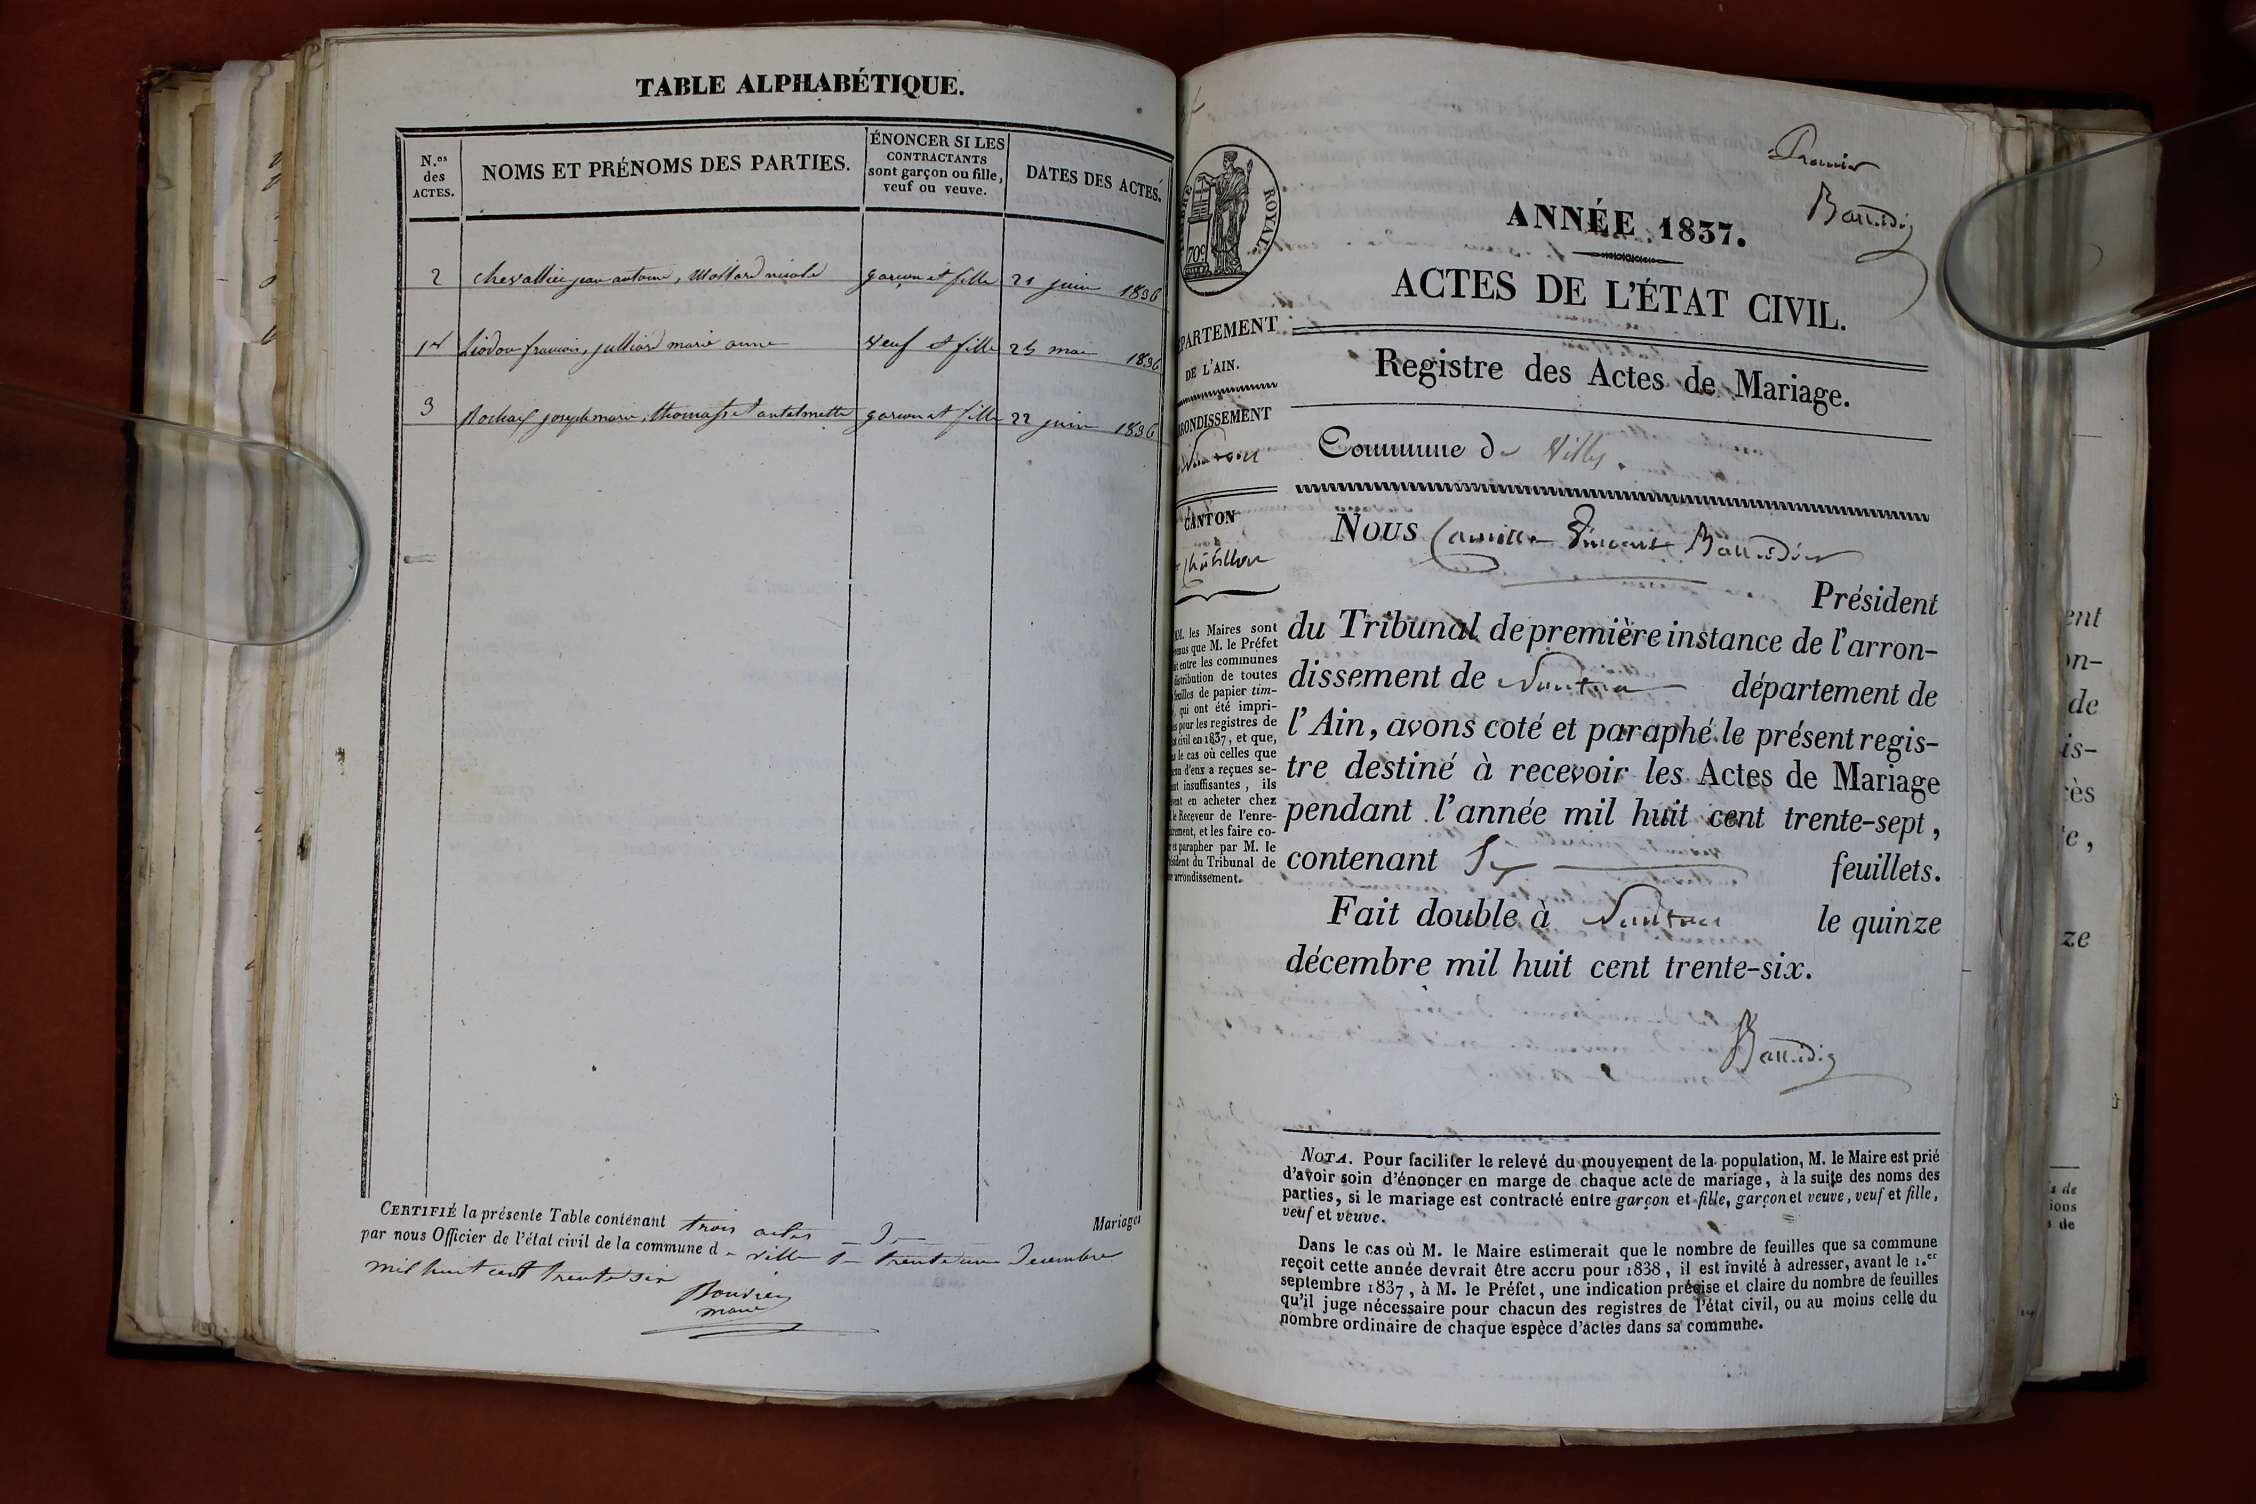 TABLE ALPHABÉTIQUE.
N.os des ACTES.
NOMS ET PRÉNOMS DES PARTIES.
ÉNONCER SI LES CONTRACTANTS sont garçon ou fille, veuf ou veuve.
DATES DES ACTES.
2 chevallier jean antoine, nicole garçon et fille 21 juin 1836
françois, julliard marie anne veuf et fille 25 mai 1836
3 Rochaix joseph marie, antelmette garçon et fille 22 juin 1836
CERTIFIÉ la présente Table contenant trois actes de Mariages
par nous Officier de l'état civil de la commune de ville le trente un Decembre
mil huit cent trente six
Bouvier
maire
Premier
Ballidier
ROYAL.
70c
ANNÉE 1837.
ACTES DE L'ÉTAT CIVIL.
PARTEMENT
DE L'AIN.
RONDISSEMENT
Nantua
CANTON
Châtillon
MM. les Maires sont
venus que M. le Préfet
it entre les communes
distribution de toutes
feuilles de papier tim-
, qui ont été impri-
es pour les registres de
t civil en 1837, et que,
s le cas où celles que
cun d'eux a reçues se-
nt insuffisantes, ils
vent en acheter chez
le Receveur de l'enre-
rement, et les faire co-
r et parapher par M. le
ésident du Tribunal de
arrondissement.
Registre des Actes de Mariage.
Commune de Villes.
NOUS Camille Vincent Ballidier
Président
du Tribunal de première instance de l'arron-
dissement de Nantua département de
l'Ain, avons coté et paraphé le présent regis-
tre destiné à recevoir les Actes de Mariage
pendant l'année mil huit cent trente-sept,
contenant Six feuillets.
Fait double à Nantua le quinze
décembre mil huit cent trente-six.
Ballidier
NOTA. Pour faciliter le relevé du mouvement de la population, M. le Maire est prié
d'avoir soin d'énoncer en marge de chaque acte de mariage, à la suite des noms des
parties, si le mariage est contracté entre garçon et fille, garçon et veuve, veuf et fille,
veuf et veuve.
Dans le cas où M. le Maire estimerait que le nombre de feuilles que sa commune
reçoit cette année devrait être accru pour 1838, il est invité à adresser, avant le 1.er
septembre 1837, à M. le Préfet, une indication précise et claire du nombre de feuilles
qu'il juge nécessaire pour chacun des registres de l'état civil, ou au moins celle du
nombre ordinaire de chaque espèce d'actes dans sa commune.